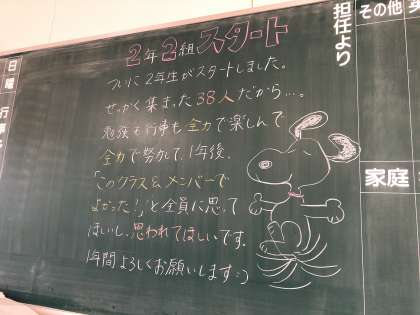 2年2組スタート
ついに2年生がスタートしました。
せっかく集まった38人だから…。
勉強も行事も全力で楽しんで
全力で努力して、1年後、
「このクラス&メンバーで
よかった!」と全員に思って
ほしいし、思われてほしいです。
1年間よろしくお願いします:)
担任より
その他
家庭
日
曜
行事